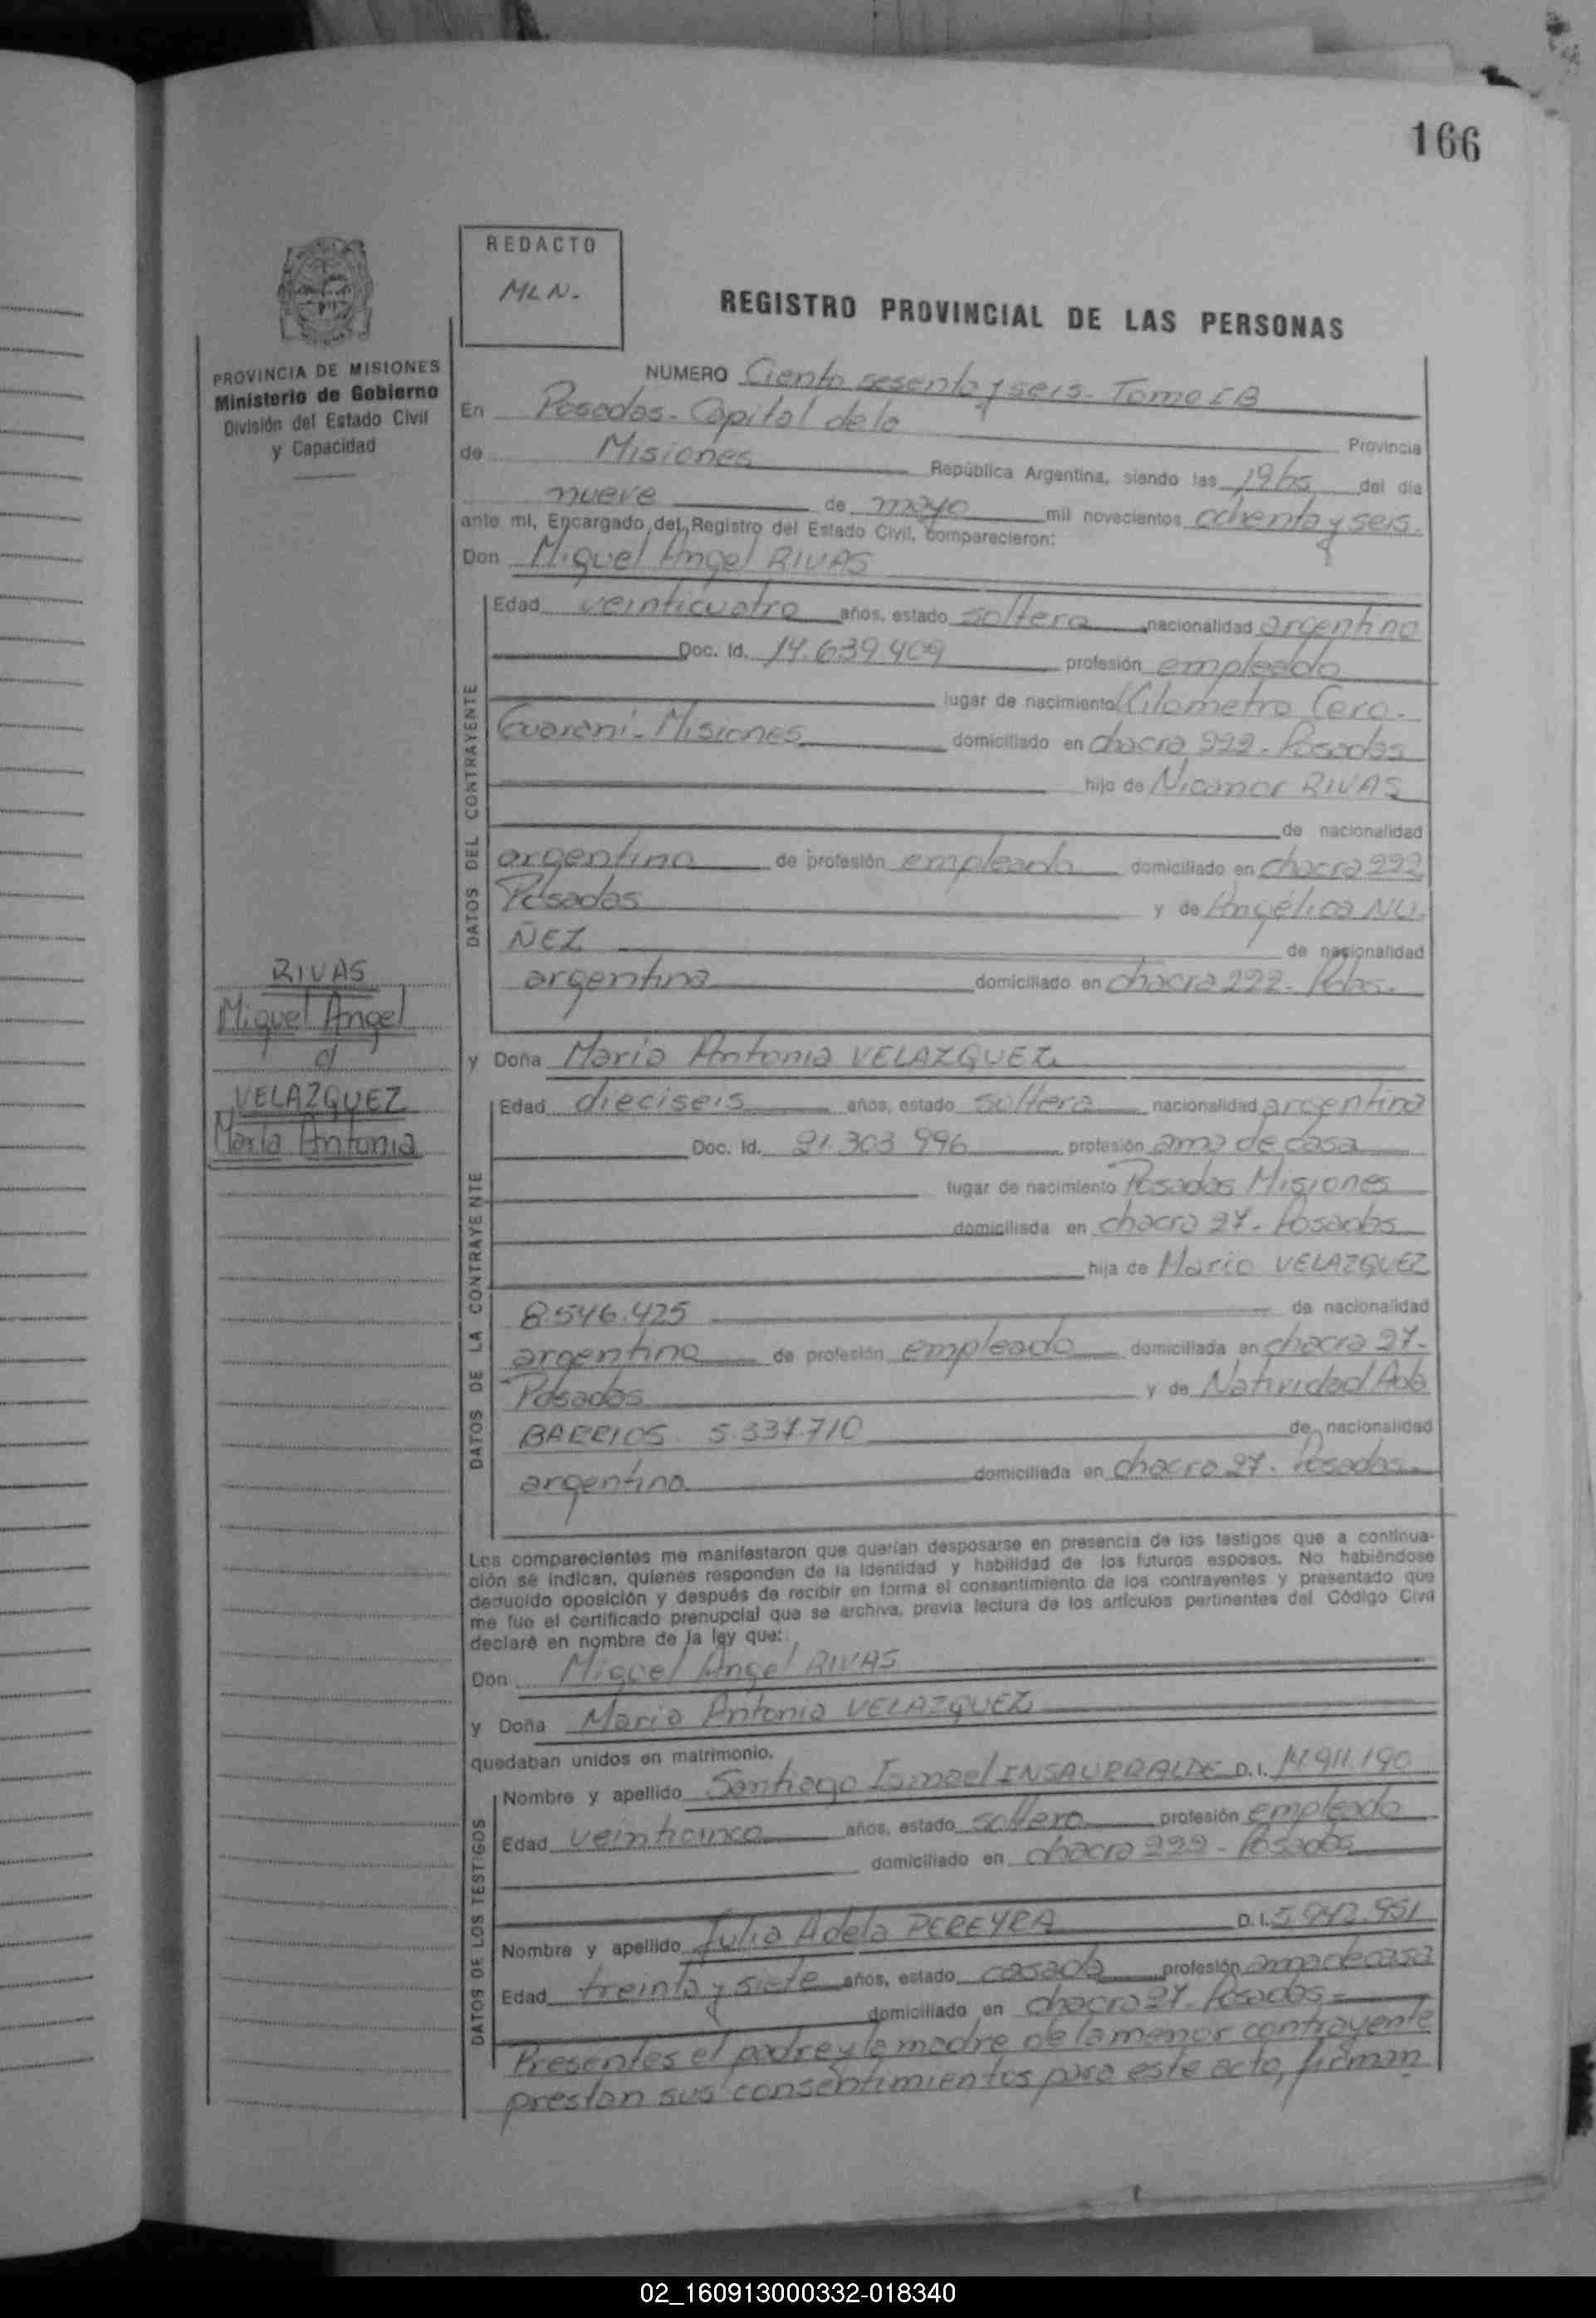 166
REDACTO
MLN.
REGISTRO PROVINCIAL DE LAS PERSONAS
PROVINCIA DE MISIONES
Ministerio de Gobierno
División del Estado Civil
y Capacidad
NUMERO Ciento sesenta y seis. Tomo I B
En Posadas - Capital de la Provincia
de Misiones República Argentina, siendo las 19 hs del día
nueve de mayo mil novecientos ochenta y seis.
ante mí, Encargado del Registro del Estado Civil, comparecieron:
Don Miguel Angel RIVAS
DATOS DEL CONTRAYENTE
Edad veinticuatro años, estado soltero nacionalidad argentino
Doc. Id. 14.639.409 profesión empleado
lugar de nacimiento Kilometro Cero-
Guaraní - Misiones domiciliado en chacra 222 - Posadas
hijo de Nicanor RIVAS
de nacionalidad
argentina de profesión empleado domiciliado en chacra 222
Posadas y de Angélica NU-
ÑEZ de nacionalidad
argentina domiciliado en chacra 222 - Pdas.
RIVAS
Miguel Angel
c/
VELAZQUEZ
María Antonia
y Doña María Antonia VELAZQUEZ
DATOS DE LA CONTRAYENTE
Edad dieciseis años, estado soltera nacionalidad argentina
Doc. Id. 21.303.996 profesión ama de casa
lugar de nacimiento Posadas Misiones
domiciliada en chacra 27 - Posadas
hija de Mario VELAZQUEZ
8.546.425 de nacionalidad
argentina de profesión empleado domiciliada en chacra 27 -
Posadas y de Natividad Ada
BARRIOS 5.337.710 de nacionalidad
argentina domiciliada en chacra 27 - Posadas.
Los comparecientes me manifestaron que querían desposarse en presencia de los testigos que a continua-
ción se indican, quienes responden de la identidad y habilidad de los futuros esposos. No habiéndose
deducido oposición y después de recibir en forma el consentimiento de los contrayentes y presentado que
me fue el certificado prenupcial que se archiva, previa lectura de los artículos pertinentes del Código Civil
declaré en nombre de la ley que:
Don Miguel Angel RIVAS
y Doña María Antonia VELAZQUEZ
quedaban unidos en matrimonio.
DATOS DE LOS TESTIGOS
Nombre y apellido Santiago Ismael INSAURRALDE D.I. 14.911.190
Edad veinticinco años, estado soltero profesión empleado
domiciliado en chacra 222 - Posadas
Nombre y apellido Julia Adela PEREYRA D.I. 5.942.951
Edad treinta y siete años, estado casada profesión ama de casa
domiciliado en chacra 27 - Posadas =
Presentes el padre y la madre de la menor contrayente
prestan sus consentimientos para este acto, firman
02_160913000332-018340